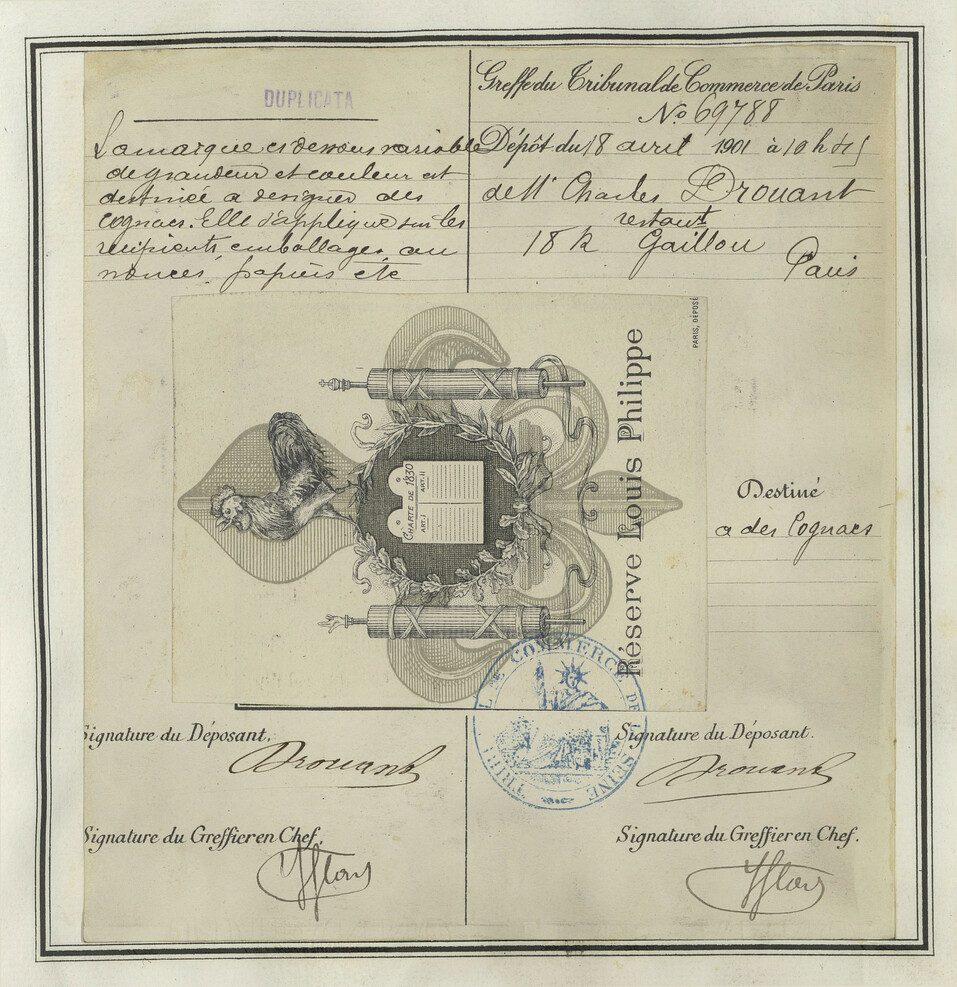 DUPLICATA
La marque ci dessous variable
de grandeur et couleur est
destinée a designer des
Cognacs. Elle s'applique sur les
récipients, emballages, an
nonces, papiers etc
Greffe du Tribunal de Commerce de Paris
No 69788
Dépôt du 18 avril 1901 à 10 h
de Mr Charles Drouant
restaurt
18 R Gaillon
Paris
PARIS, DÉPOSÉ
Réserve Louis Philippe
CHARTE DE 1830
ART. I
ART. II
Destiné
a des Cognacs
TRIBL DE COMMERCE DE LA SEINE
Signature du Déposant.
Drouant
Signature du Greffier en Chef.
Signature du Déposant.
Drouant
Signature du Greffier en Chef.